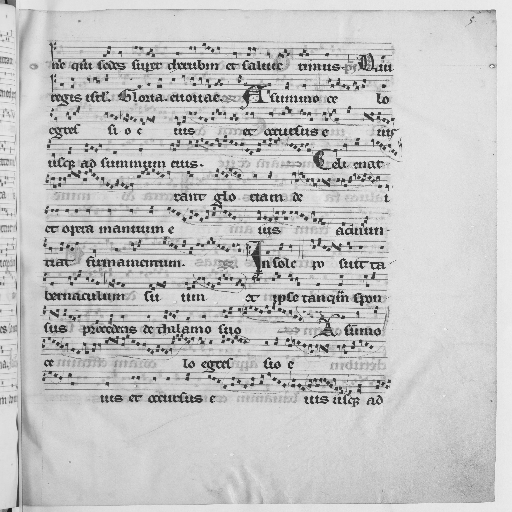 ne qui sedes super cherubin et saluie remus. Qui
regis isrl. Gloria. euouae. A summo ce lo
egres si o e ius et occursus e ius
usq; ad summum eius. Celi enar
rant glo riam de i
et opera manuum e ius annun
tiat firmamentum. In sole po suit ta
bernaculum su um et ipse tanqm spon
sus procedens de thalamo suo A sumo
ce lo egres sio e
ius et occursus e ius usq; ad